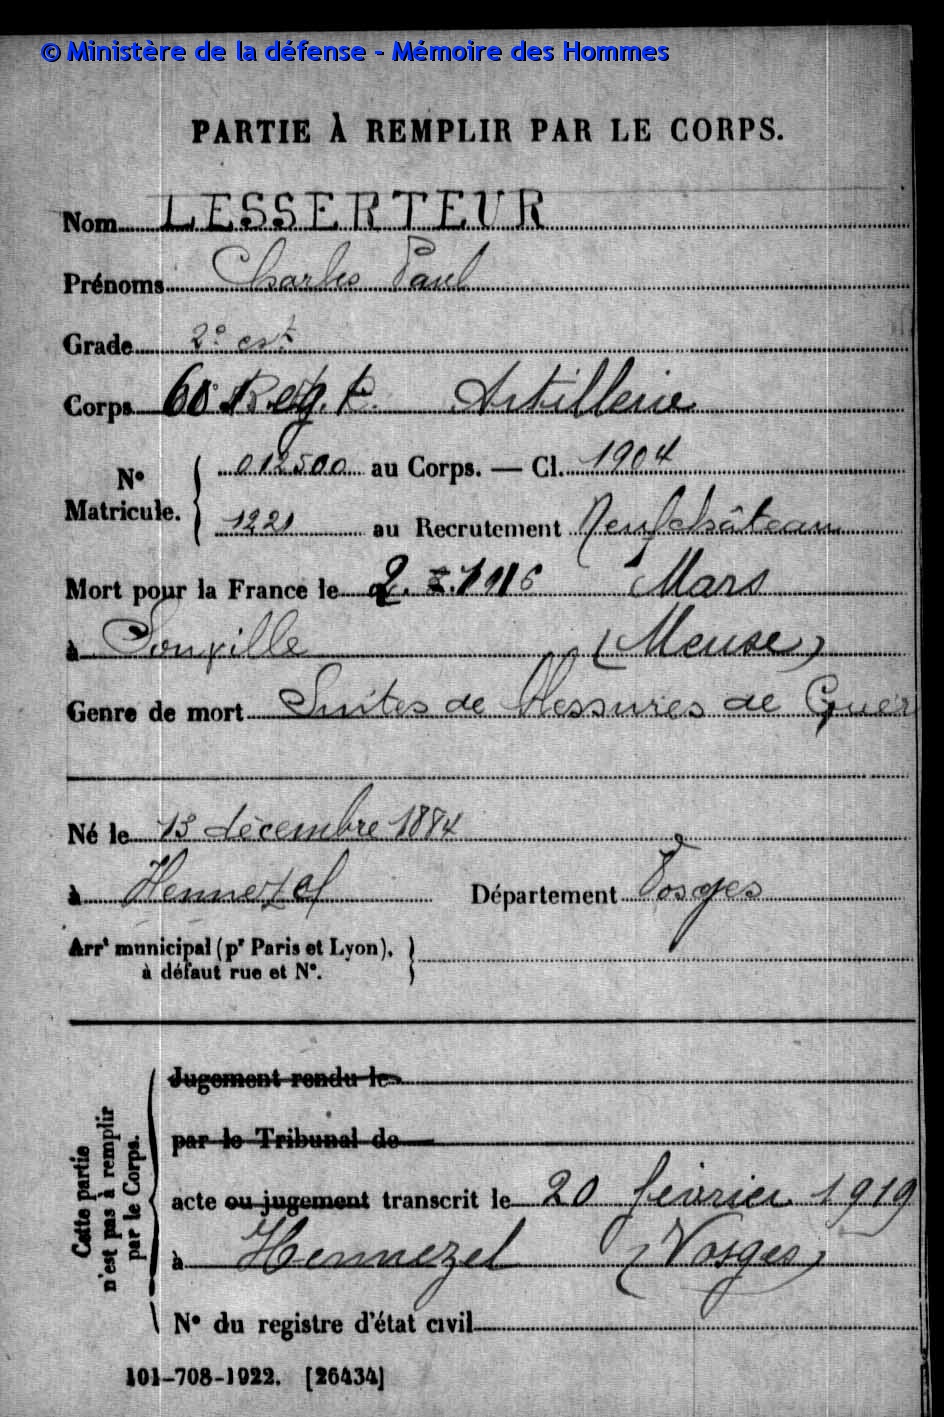 © Ministère de la défense - Mémoire des Hommes
PARTIE À REMPLIR PAR LE CORPS.
Nom LESSERTEUR
Prénoms Charles Paul
Grade 2e
Corps Regt. Artillerie
No Matricule. { 012500 au Corps. — Cl. 1904
1221 au Recrutement Neufchâteau
Mort pour la France le 2. 1916 Mars
à Souville (Meuse)
Genre de mort Suites de blessures de Guer
Né le 13 décembre 1884
à Hennezel Département Vosges
Arrt municipal (pr Paris et Lyon), }
à défaut rue et No.
Cette partie
n'est pas à remplir
par le Corps.
Jugement rendu le
par le Tribunal de
acte ou jugement transcrit le 20 février 1919
à Hennezel (Vosges)
No du registre d'état civil
101-708-1922. [26434]